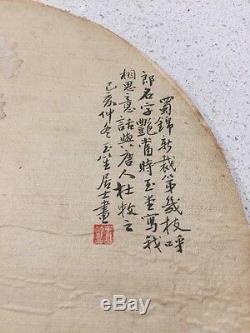 蜀錦新裁第幾枝呼
郎名字艷當時玉堂寫我
相思意話與唐人杜牧之
己亥仲冬玉堂居士畫